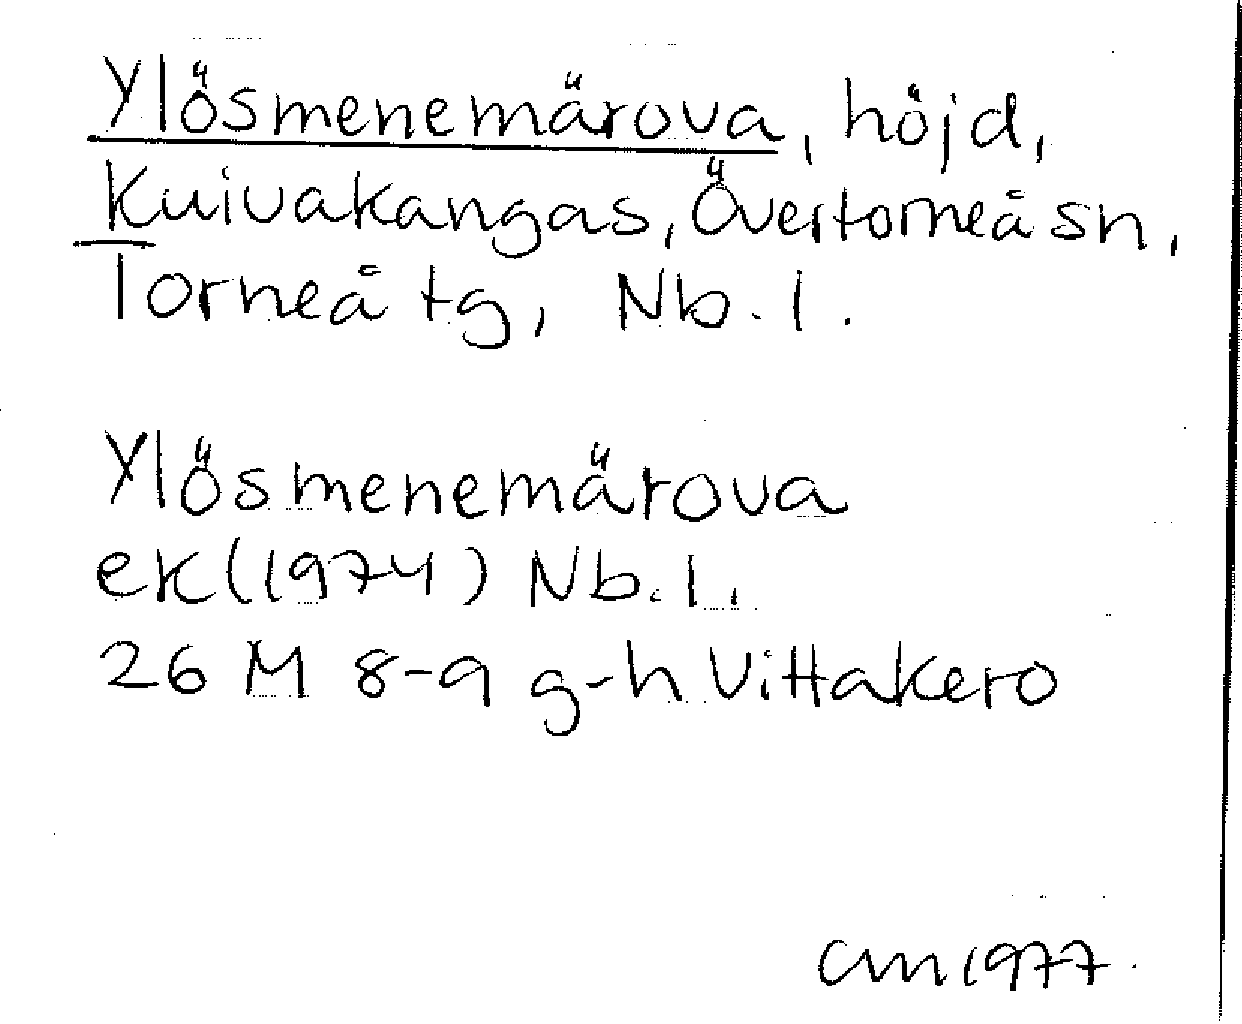 Ylösmenemärova, höjd,
Kuivakangas, Övertorneå sn,
Torneå tg, Nb. l.
Ylösmenemärova
ek (1974) Nb. l.
26 M 8-9 g-h Vittakero
CM 1977.